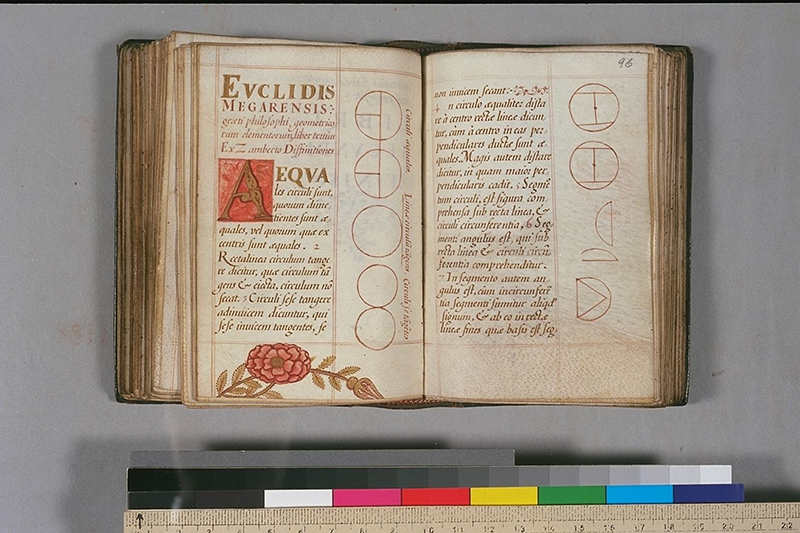 EVCLIDIS
MEGARENSIS:
græci philosophi, geometrico
rum elementorum, liber tertius
Ex Zamberto Diffinitiones
AEQVA
les circuli sunt,
quorum dime
tientes sunt æ
quales, vel quorum quæ ex
centri sunt æquales. 2
Rectalinea circulum tange
re dicitur, quæ circulum tā
gens & eiecta, circulum nō
secat. 3 Circuli sese tangere
adinuicem dicuntur, qui
sese inuicem tangentes, se
Circuli æquales
Linea circulū tangens
Circuli
96
non inuicem secant:
4 n circulo æqualiter dista
re à centro rectæ lineæ dicun
tur, cùm à centro in eas per
pendiculares ductæ sunt æ
quales. Magis autem distare
dicitur, in quam maior per
pendicularis cadit. 5 Segmē
tum circuli, est figura com
prehensa sub recta linea, &
circuli circunferentia, 6 Seg
menti angulus est, qui sub
recta linea & circuli circū
ferentia comprehenditur.
7 In segmento autem an
gulus est, cùm in circunferē
tia segmenti sumitur aliqd'
signum, & ab eo in rectæ
lineæ fines quæ basis est seg
10 11 12 13 14 15 16 17 18 19 20 21 22